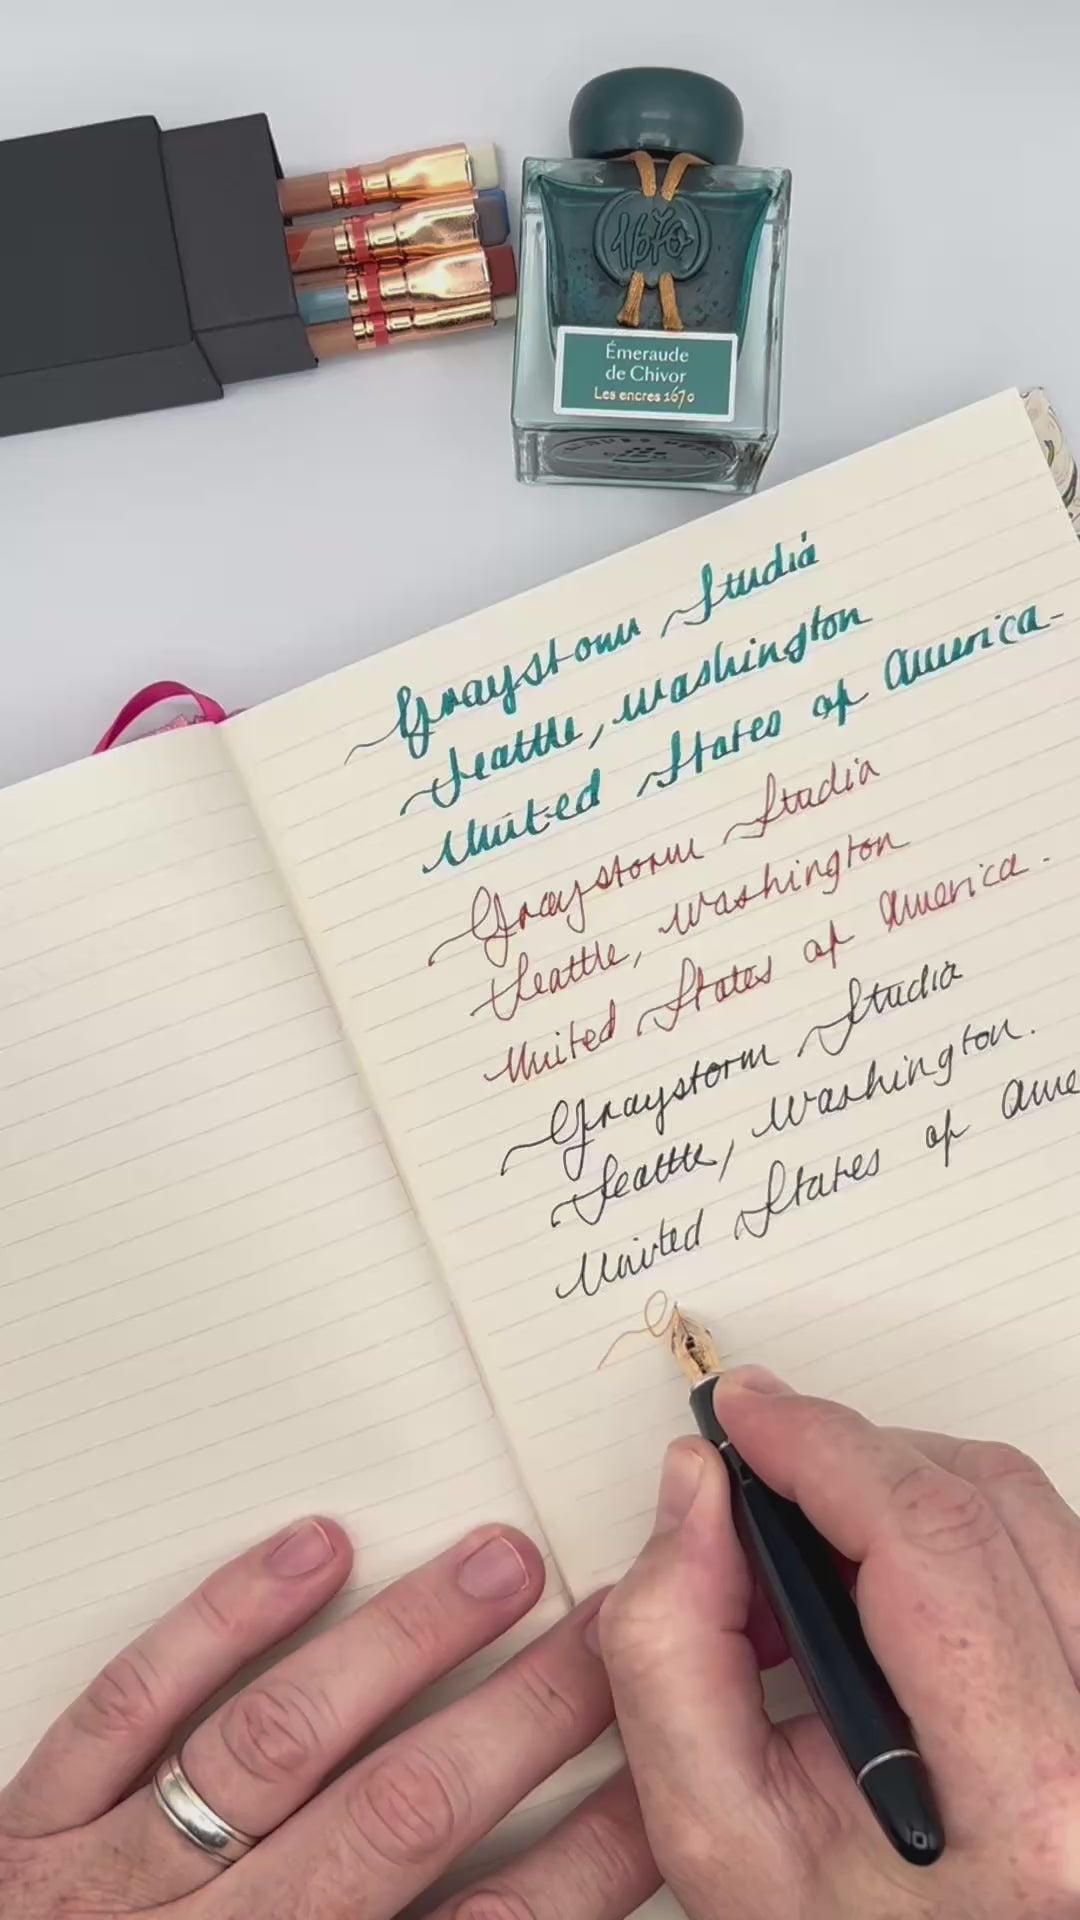 1670
Émeraude
de Chivor
Les encres 1670
Graystorm Studia
Seattle, Washington
United States of America.
Graystorm Studia
Seattle, Washington
United States of America.
Graystorm Studia
Seattle, Washington.
United States of Ame
G